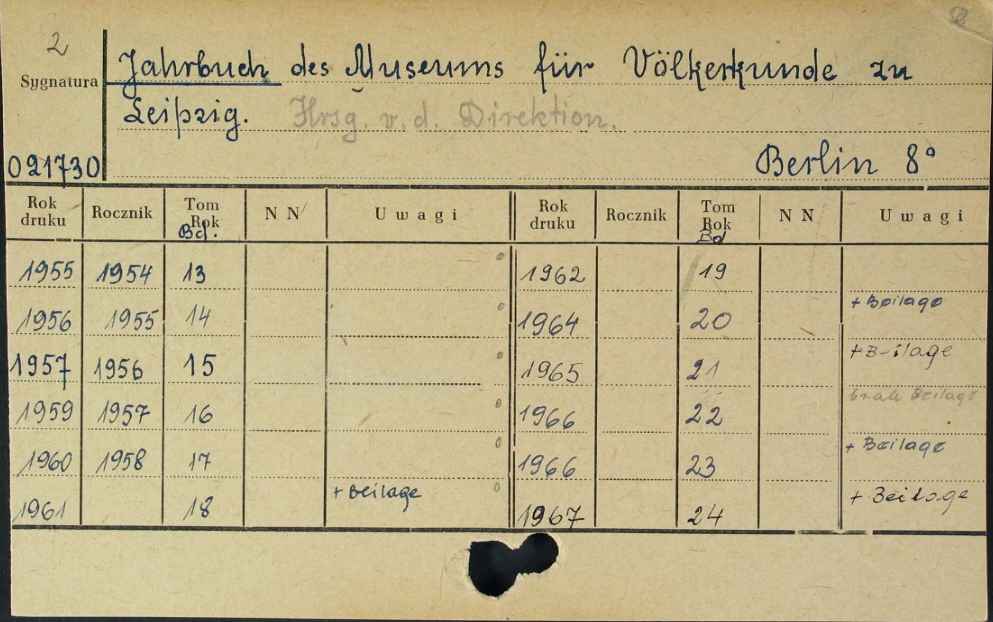 2
Sygnatura
Jahrbuch des Museums für Völkerkunde zu
Leipzig. Hrsg. v. d. Direktion.
021730
Berlin 8°
Rok druku Rocznik Tom Rok Bd. N N Uwagi Rok druku Rocznik Tom Rok Bd N N Uwagi
1955 1954 13 1962 19
1956 1955 14 1964 20 + Beilage
1957 1956 15 1965 21 + B-ilage
1959 1957 16 1966 22 brak Beilage
1960 1958 17 1966 23 + Beilage
1961 18 + Beilage 1967 24 + Beilage